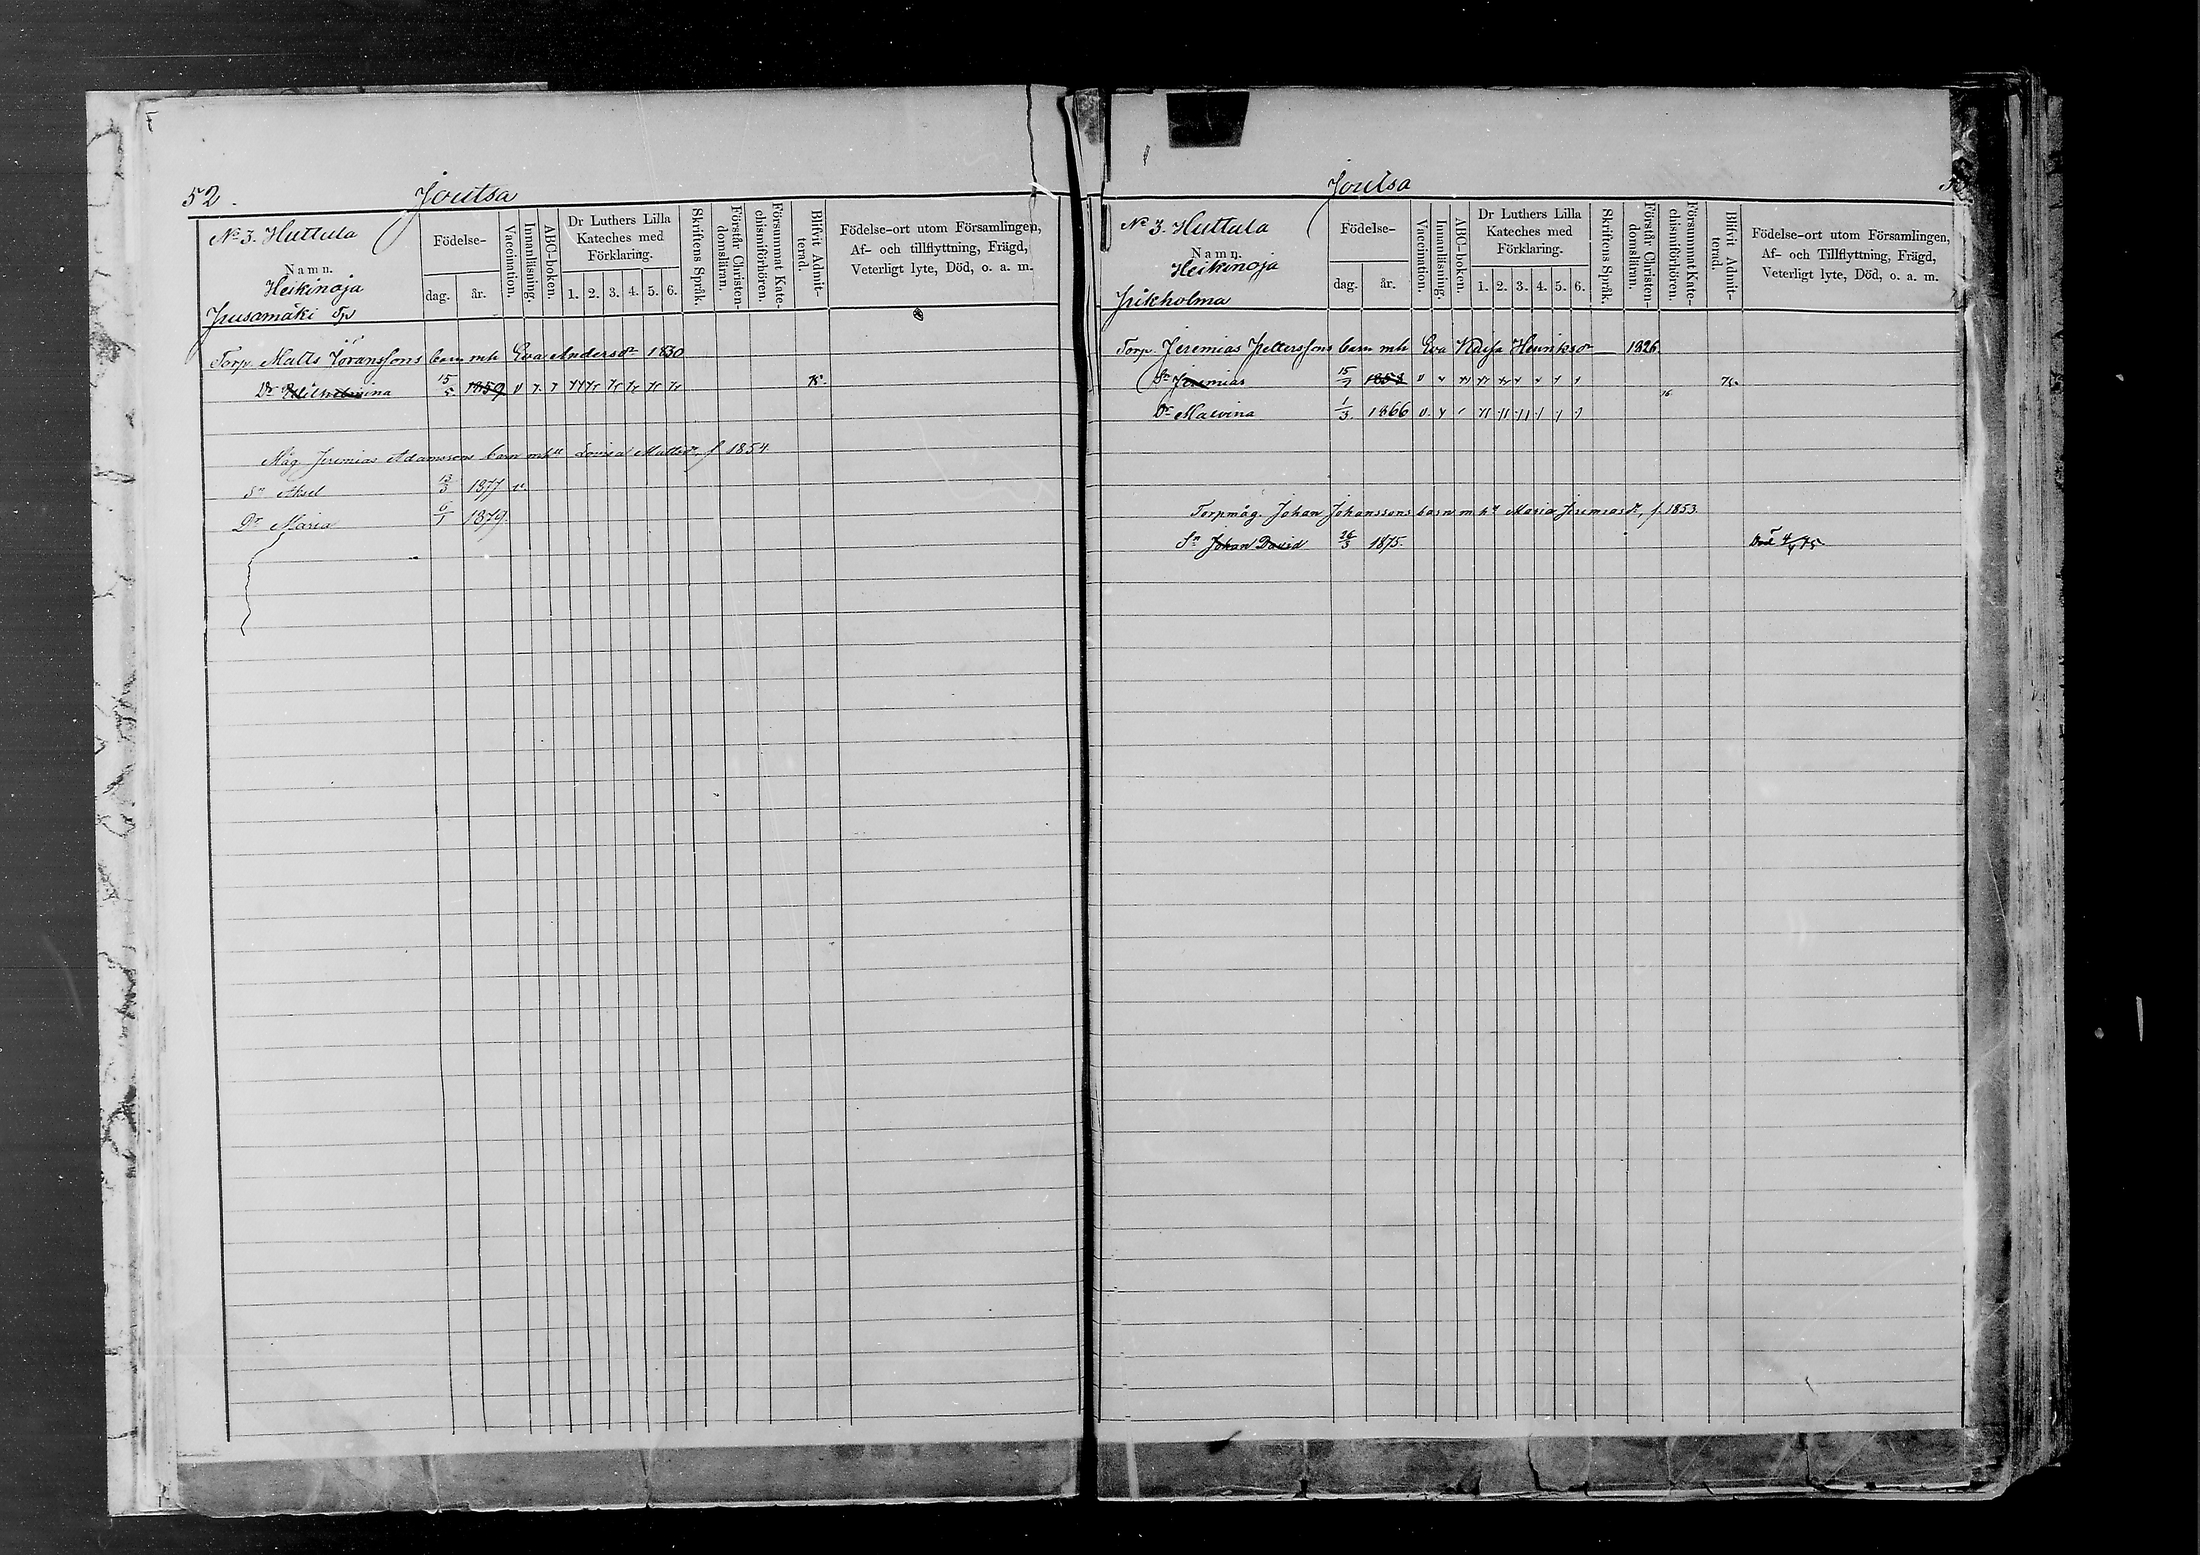 52.
Joutsa
No 3. Huttula
Namn.
Heikinoja
Födelse-
dag.
år.
Vaccination.
Innanläsning.
ABC-boken.
Dr Luthers Lilla
Kateches med
Förklaring.
1. 2. 3. 4. 5. 6.
Skriftens Språk.
Förstår Christen-
domsläran.
Försummat Kate-
chismiförhören.
Blifvit Admit-
terad.
Födelse-ort utom Församlingen,
Af- och tillflyttning, Frägd,
Veterligt lyte, Död, o. a. m.
Torp. Matts Göranssons barn mh Eva Andersdr 1830
Dr Wilhelmina 15/5 1859
Måg Jeremias Adamssons barn mhu Lovisa Mattsdr, f 1854
Sn Aksel 13/3 1877 v.
Dr Maria 6/1 1879.
Joutsa
No 3. Huttula
Namn.
Heikinoja
Födelse-
dag.
år.
Vaccination.
Innanläsning.
ABC-boken.
Dr Luthers Lilla
Kateches med
Förklaring.
1. 2. 3. 4. 5. 6.
Skriftens Språk.
Förstår Christen-
domsläran.
Försummat Kate-
chismiförhören.
Blifvit Admit-
terad.
Födelse-ort utom Församlingen,
Af- och Tillflyttning, Frägd,
Veterligt lyte, Död, o. a. m.
Torp. Jeremias Pettersson barn mh Eva Henriksdr 1826.
Sn Jeremias 15/7 1853
Dr Malvina 1/3 1866
Torpmåg. Johan Johanssons barn m hu Maria Jeremiasdr, f. 1853.
Sn Johan David 26/3 1875. Död 4/4 75